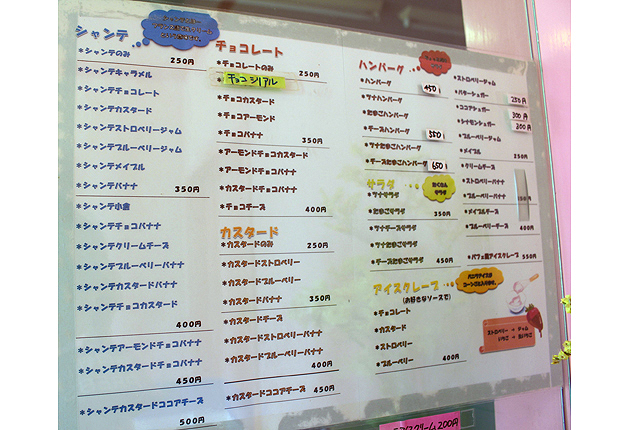 シャンテ
*シャンテのみ
250円
*シャンテキャラメル
*シャンテチョコレート
*シャンテカスタード
*シャンテストロベリージャム
*シャンテブルーベリージャム
*シャンテメイプル
*シャンテバナナ 350円
*シャンテ小倉
*シャンテチョコバナナ
*シャンテクリームチーズ
*シャンテブルーベリーバナナ
*シャンテカスタードバナナ
*シャンテチョコカスタード
400円
*シャンテアーモンドチョコバナナ
*シャンテカスタードチョコバナナ
450円
*シャンテカスタードココアチーズ
500円
チョコレート
*チョコレートのみ
250円
*チョコシリアル
*チョコカスタード
*チョコアーモンド
*チョコバナナ 350円
*アーモンドチョコカスタード
*アーモンドチョコバナナ
*カスタードチョコバナナ
*チョコチーズ 400円
カスタード
*カスタードのみ 250円
*カスタードストロベリー
*カスタードブルーベリー
*カスタードバナナ 350円
*カスタードチーズ
*カスタードストロベリーバナナ
*カスタードブルーベリーバナナ
400円
*カスタードココアチーズ 450円
ハンバーグ
*ハンバーグ 450
*ツナハンバーグ
*たまごハンバーグ
*チーズハンバーグ 550
*ツナたまごハンバーグ
*チーズたまごハンバーグ 650
サラダ
たくさん
サラダ
*ツナサラダ
*たまごサラダ 350円
*ツナチーズサラダ
*ツナたまごサラダ
*チーズたまごサラダ 450円
アイスクレープ
(お好きなソースで)
*チョコレート
*カスタード
*ストロベリー
*ブルーベリー 400円
*ストロベリージャム
*バターシュガー 250円
*ココアシュガー 300円
*シナモンシュガー 300円
*ブルーベリージャム
*メイプル 350円
*クリームチーズ
*ストロベリーバナナ
*ブルーベリーバナナ
*メイプルチーズ
*ブルーベリーチーズ 400円
*パフェ風アイスクレープ 550円
ストロベリー → ジャム
いちご → 生いちご
アイスクリーム200円